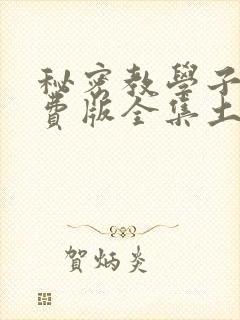 秘密教學子
費版全集土
賀炳炎